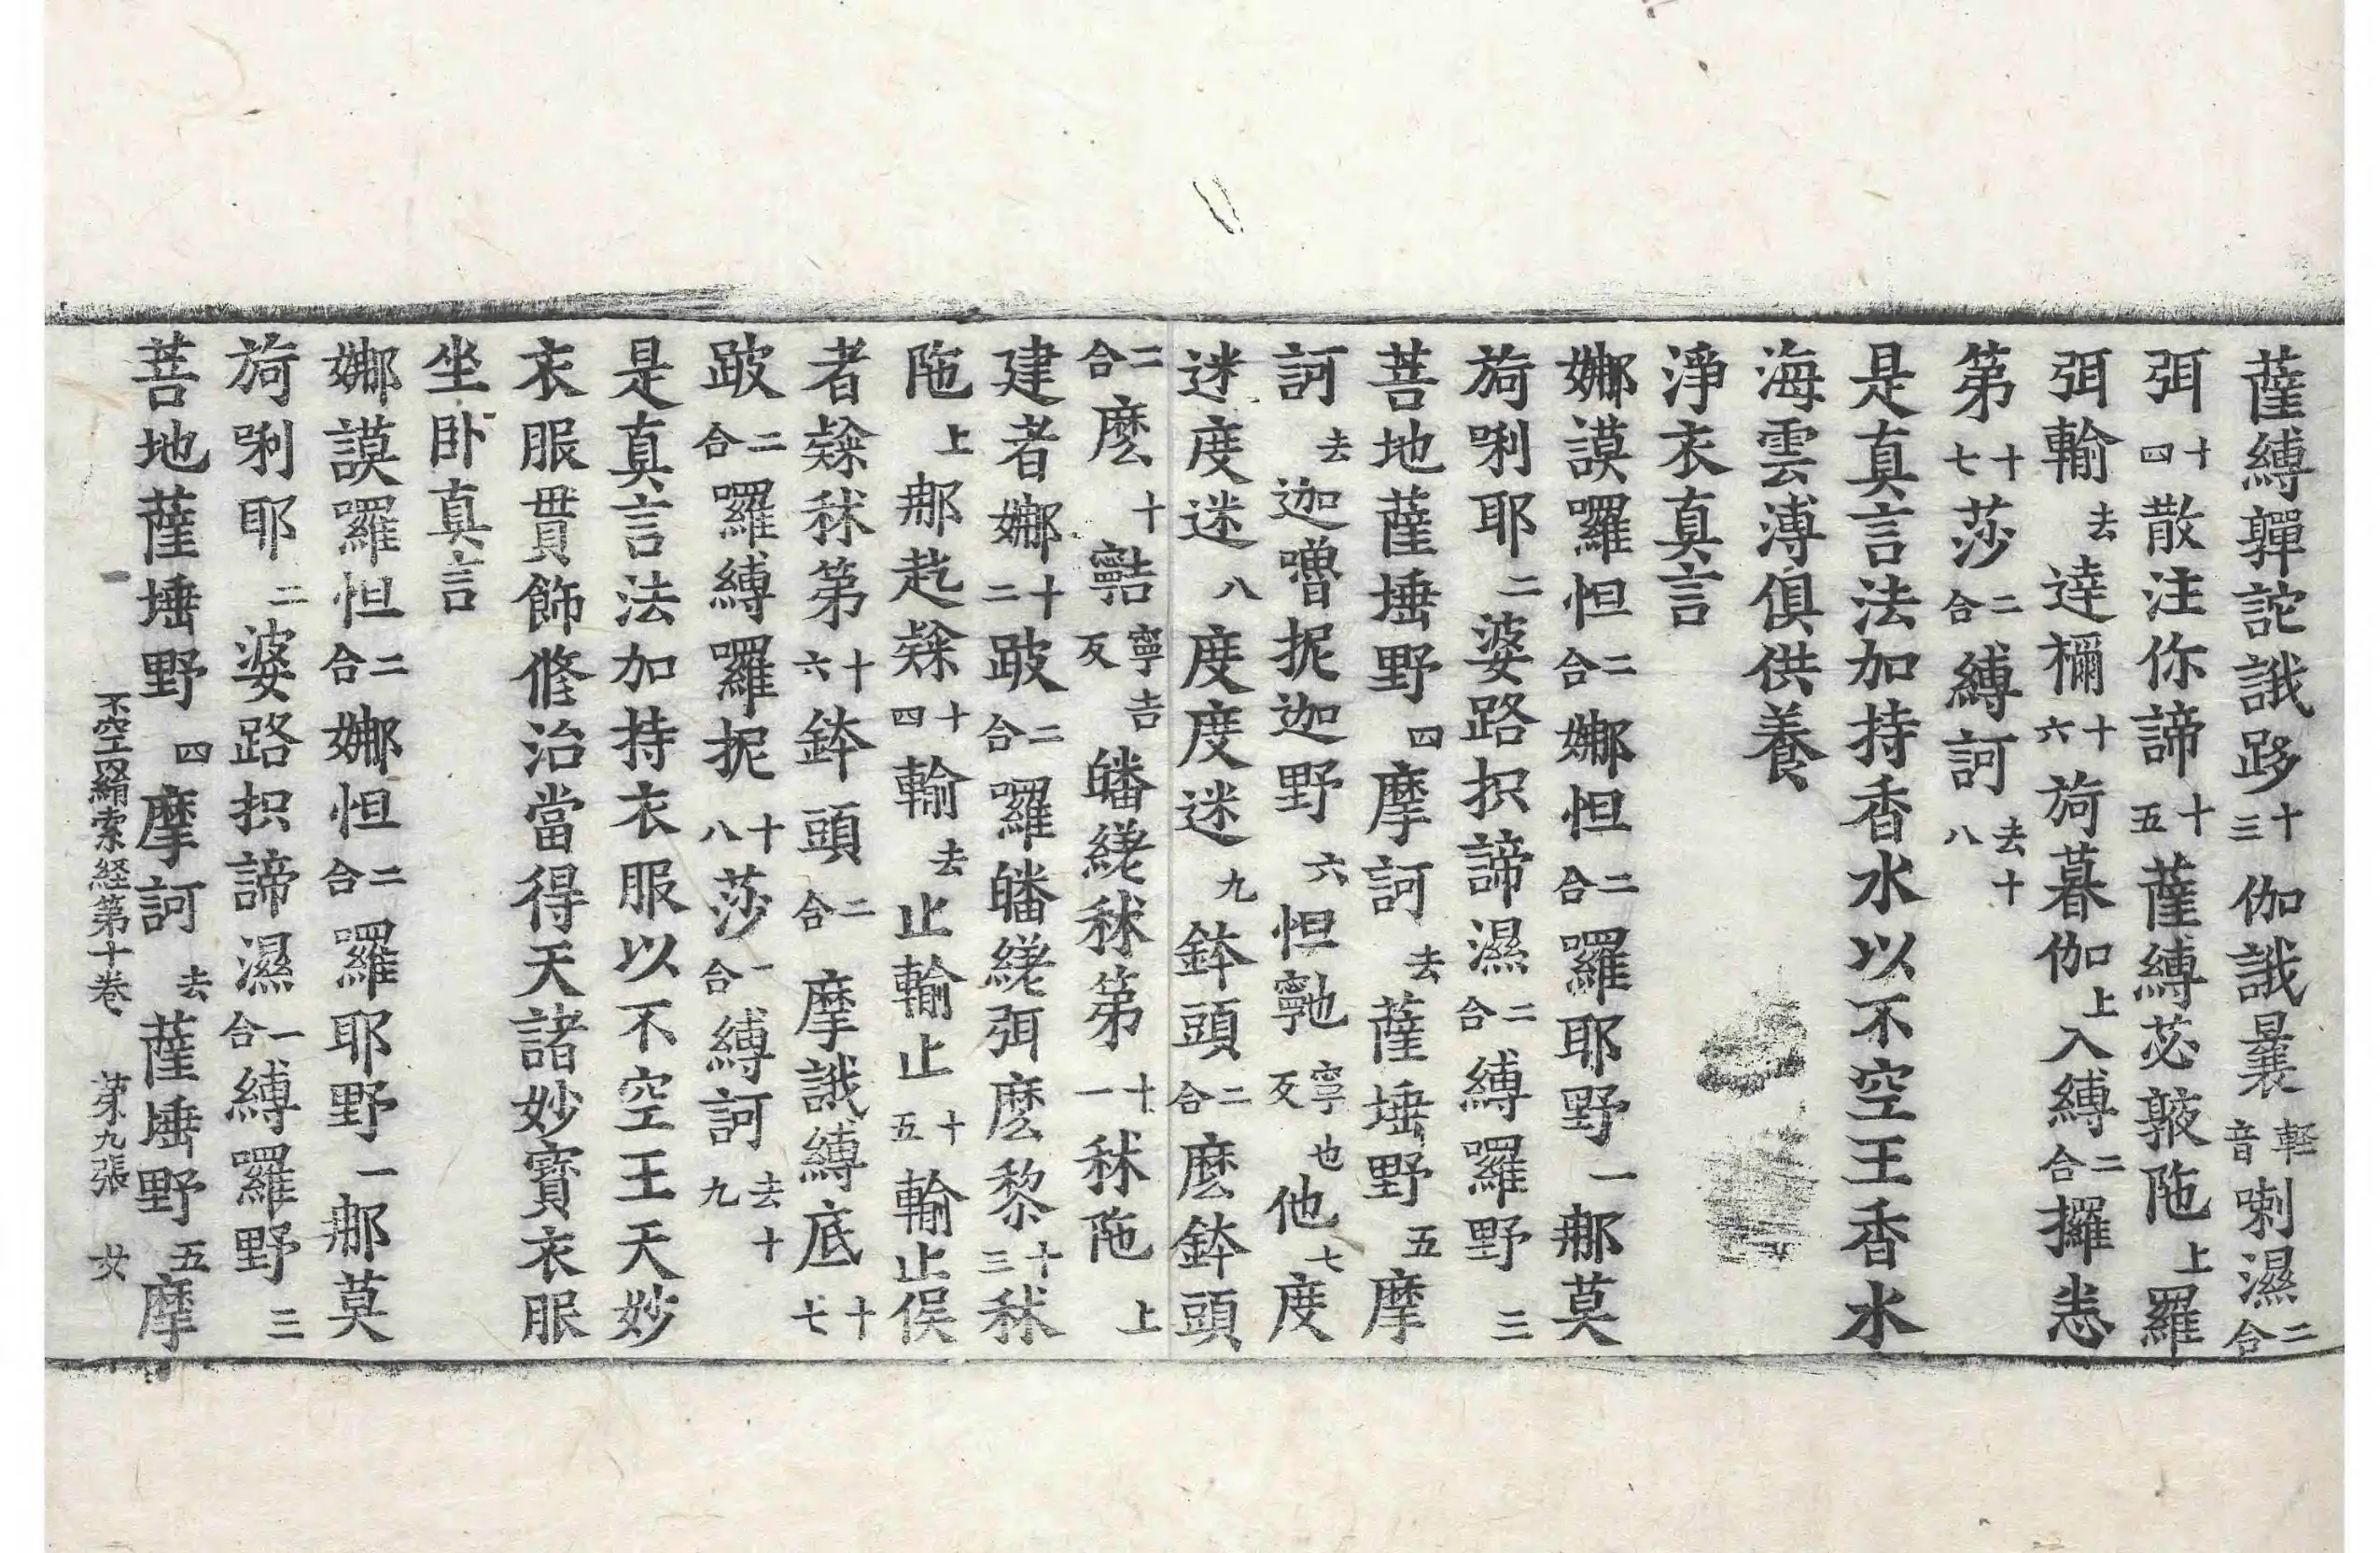 薩縛軃詑誐跢十三伽誐曩輕音喇濕二合
弭十四散注你諦十五薩縛苾敠陁上羅
弭輸去達禰十六旖暮伽上入縛二合攞恚
第十七莎二合縛訶去十八
是真言法加持香水以不空王香水
海雲溥俱供養
淨衣真言
娜謨囉怛二合娜怛二合囉耶野一那莫
旖唎耶二婆路抧諦濕二合縛囉野三
菩地薩埵野四摩訶去薩埵野五摩
訶去迦嚕抳迦野六怛寧也反他七度
迷度迷八度度迷九鉢頭二合麽鉢頭
二合麽十寧吉反皤繞秝第十一秝陁上
建者娜十二跛二合囉皤繞弭麽黎十三秝
陁上那訖十四輸去止輸止十五輸止俁
者秝第十六鉢頭二合摩誐縛底十七
跛二合囉縛囉抳十八莎一合縛訶去十九
是真言法加持衣服以不空王天妙
衣服貫飾修治當得天諸妙寶衣服
坐卧真言
娜謨囉怛二合娜怛二合囉耶野一那莫
旖唎耶二婆路抧諦濕一合縛囉野三
菩地薩埵野四摩訶去薩埵野五摩
不空罥索経第十卷 第九張 女